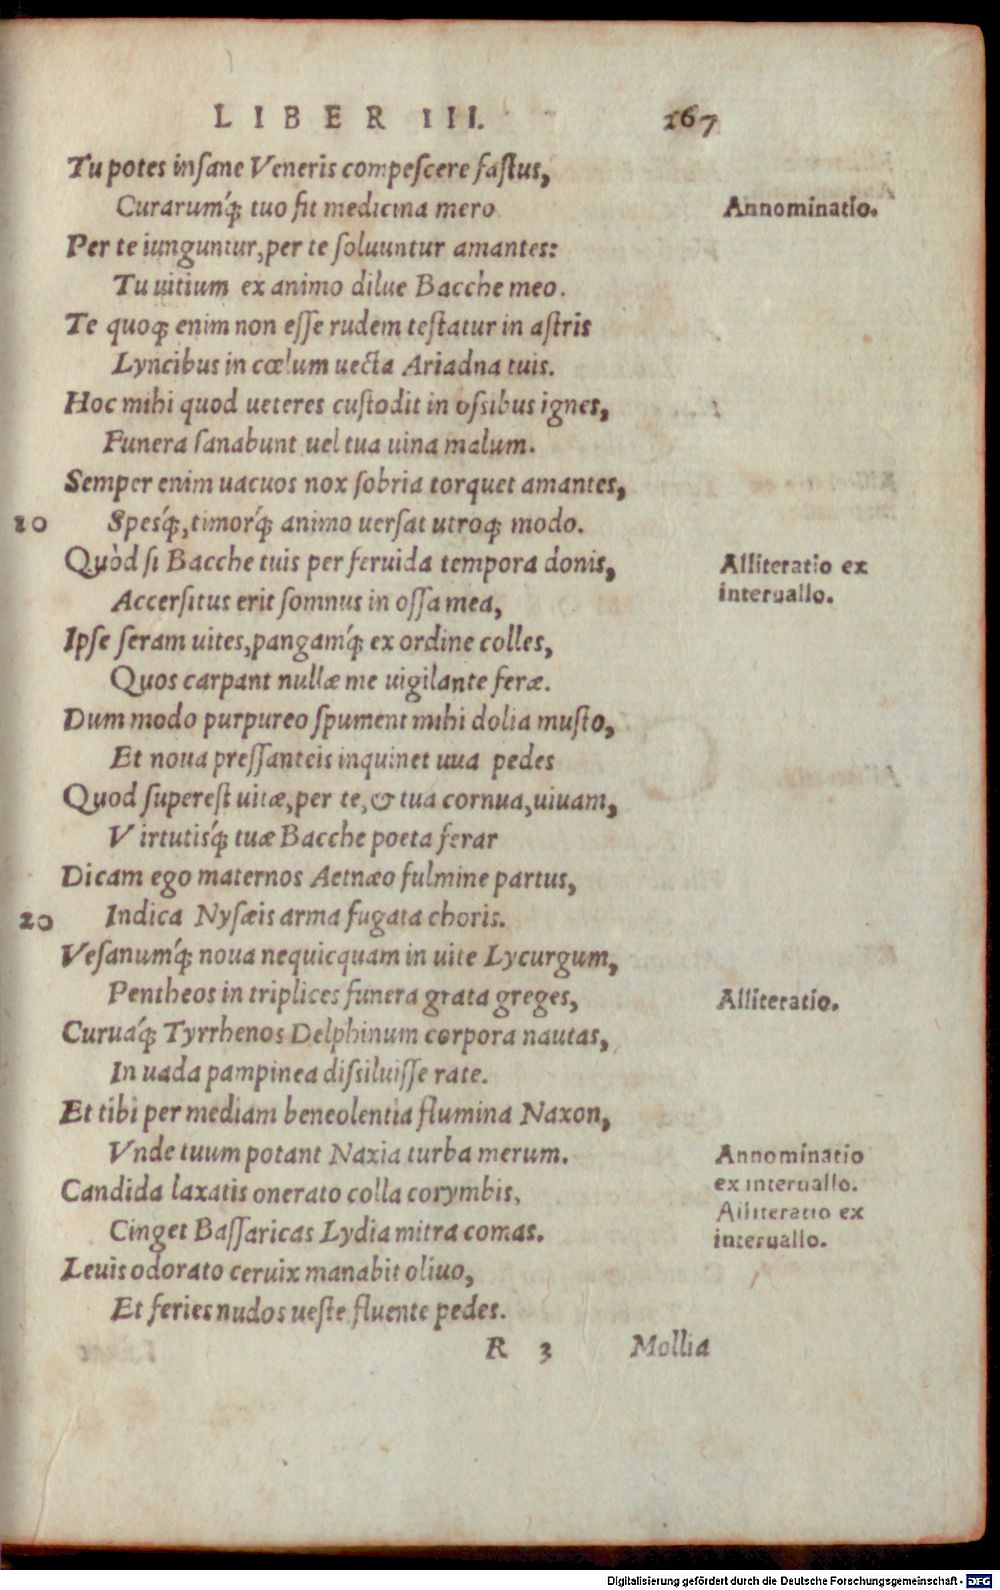 LIBER III. 167
Tu potes insane Veneris compescere fastus,
Curarumq́; tuo fit medicina mero Annominatio.
Per te iunguntur, per te soluuntur amantes:
Tu uitium ex animo dilue Bacche meo.
Te quoq; enim non esse rudem testatur in astris
Lyncibus in cœlum uecta Ariadna tuis.
Hoc mihi quod ueteres custodit in ossibus ignes,
Funera sanabunt uel tua uina malum.
Semper enim uacuos nox sobria torquet amantes,
10 Spesq́;, timorq́; animo uersat utroq; modo.
Quòd si Bacche tuis per feruida tempora donis, Alliteratio ex
Accersitus erit somnus in ossa mea, interuallo.
Ipse seram uites, pangamq́; ex ordine colles,
Quos carpant nullæ me uigilante feræ.
Dum modo purpureo spument mihi dolia musto,
Et noua pressanteis inquinet uua pedes
Quod superest uitæ, per te, & tua cornua, uiuam,
Virtutisq́; tuæ Bacche poeta ferar
Dicam ego maternos Aetnæo fulmine partus,
20 Indica Nysæis arma fugata choris.
Vesanumq́; noua nequicquam in uite Lycurgum,
Pentheos in triplices funera grata greges, Alliteratio.
Curuaq́; Tyrrhenos Delphinum corpora nautas,
In uada pampinea dissiluisse rate.
Et tibi per mediam beneolentia flumina Naxon,
Vnde tuum potant Naxia turba merum. Annominatio
Candida laxatis onerato colla corymbis, ex interuallo.
Alliteratio ex
Cinget Bassaricas Lydia mitra comas. interuallo.
Leuis odorato ceruix manabit oliuo,
Et feries nudos ueste fluente pedes.
R 3 Mollia
Digitalisierung gefördert durch die Deutsche Forschungsgemeinschaft - DFG